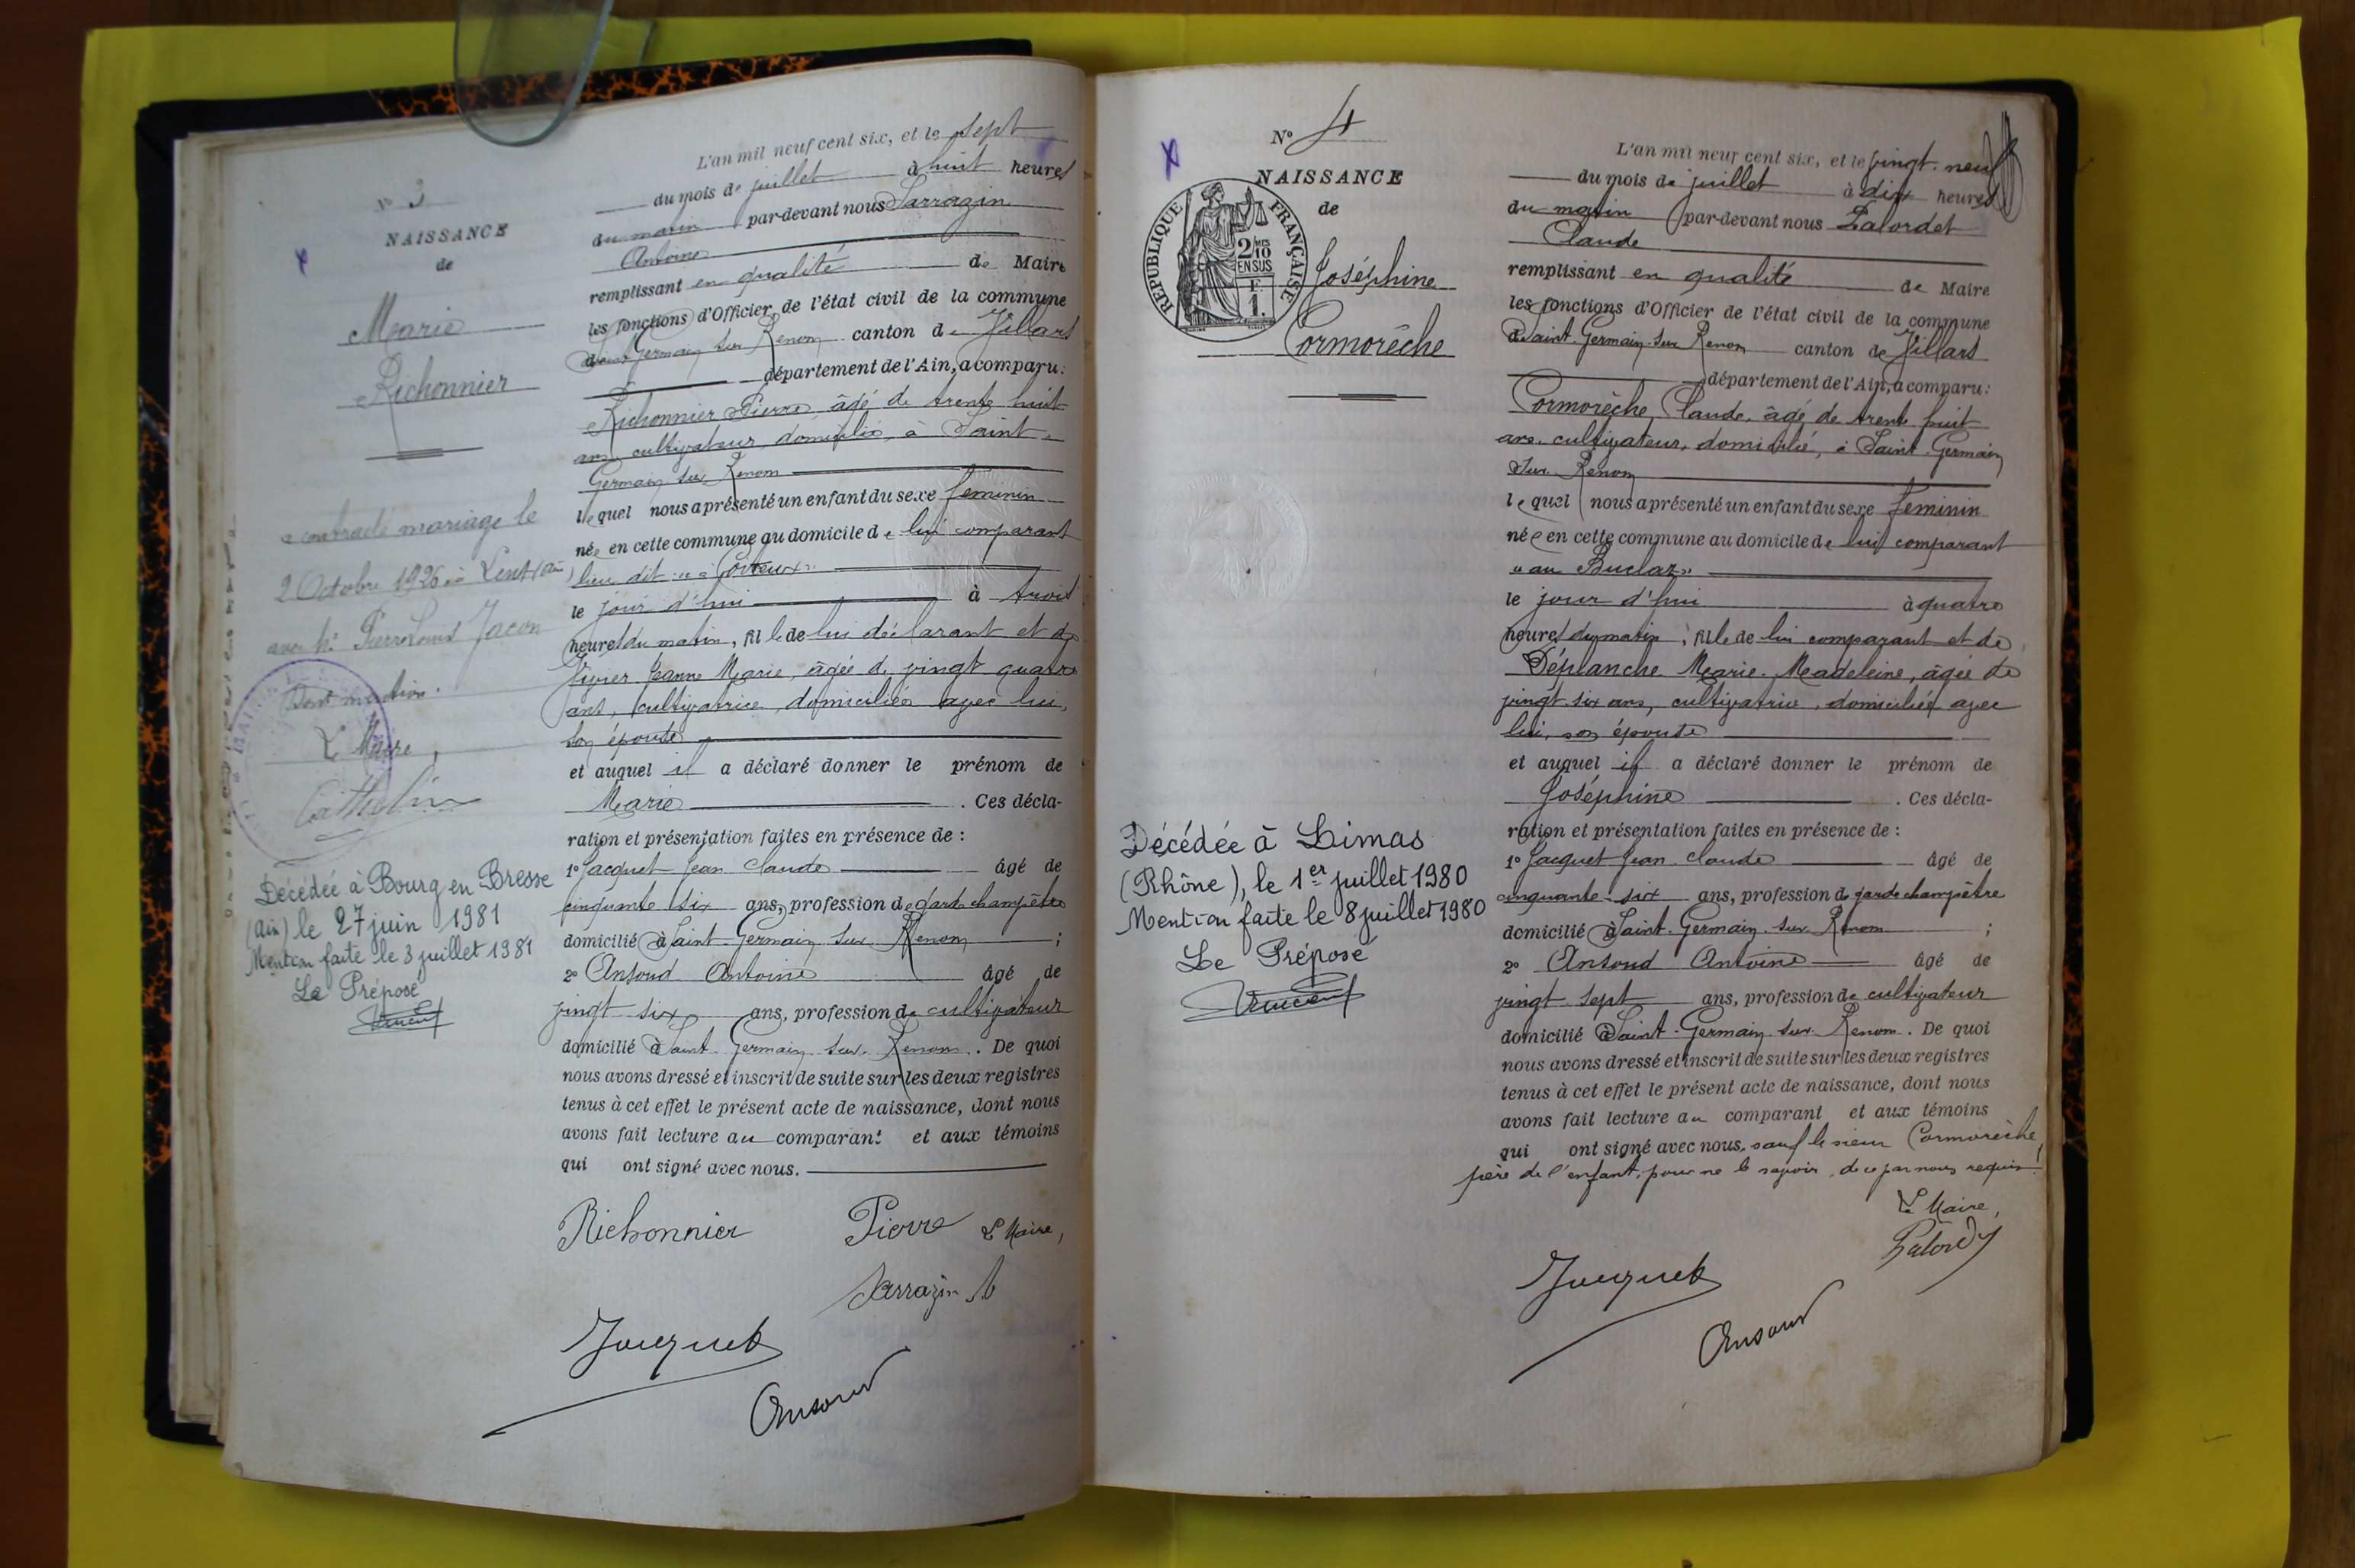 N° 3
NAISSANCE
de
Marie
Richonnier
a contracté mariage le
2 Octobre 1926 à Lent (Ain)
avec Mr Pierre Louis Jacon
Dont mention.
Le Maire,
Décédée à Bourg en Bresse
(Ain) le 27 juin 1981
Mention faite le 3 juillet 1981
Le Préposé
Vincent
L'an mil neuf cent six, et le sept
du mois de juillet à huit heures
du matin par-devant nous Sarrazin
Antoine
remplissant en qualité de Maire
les fonctions d'Officier de l'état civil de la commune
de Saint Germain sur Renom canton de Villars
département de l'Ain, a comparu:
Richonnier Pierre, âgé de trente huit
ans, cultivateur, domicilié, à Saint-
Germain sur Renom
lequel nous a présenté un enfant du sexe féminin
née en cette commune au domicile de lui comparant
lieu dit
le jour d'hui à trois
heures du matin, fille de lui déclarant et de
Vivier Jeanne Marie, âgée de vingt quatre
ans, cultivatrice, domiciliée avec lui,
son épouse
et auquel il a déclaré donner le prénom de
Marie . Ces décla-
ration et présentation faites en présence de :
1° Jacquet Jean Claude âgé de
cinquante six ans, profession de garde champêtre
domicilié à Saint Germain sur Renom ;
2° Ansoud Antoine âgé de
vingt six ans, profession de cultivateur
domicilié à Saint-Germain sur Renom. De quoi
nous avons dressé et inscrit de suite sur les deux registres
tenus à cet effet le présent acte de naissance, dont nous
avons fait lecture au comparant et aux témoins
qui ont signé avec nous.
Richonnier Pierre Le Maire,
Sarrazin A
Jacquet
Ansoud
N° 4
NAISSANCE
de
REPUBLIQUE FRANÇAISE
2/10 EN SUS
F.
1.
Joséphine
Cormorèche
Décédée à Limas
(Rhône), le 1er juillet 1980
Mention faite le 8 juillet 1980
Le Préposé
Vincent
L'an mil neuf cent six, et le vingt-neuf
du mois de juillet à dix heures
du matin par-devant nous Palordet
Claude
remplissant en qualité de Maire
les fonctions d'Officier de l'état civil de la commune
de Saint-Germain-sur Renom canton de Villars
département de l'Ain, a comparu:
Cormorèche, Claude, âgé de trente huit
ans, cultivateur, domicilié, à Saint-Germain
sur-Renom
lequel nous a présenté un enfant du sexe féminin
née en cette commune au domicile de lui comparant
"au Buclaz"
le jour d'hui à quatre
heures du matin, fille de lui comparant et de
Déplanche Marie-Madeleine, âgée de
vingt-six ans, cultivatrice, domiciliée avec
lui, son épouse
et auquel il a déclaré donner le prénom de
Joséphine . Ces décla-
ration et présentation faites en présence de :
1° Jacquet Jean-Claude âgé de
cinquante-six ans, profession de garde champêtre
domicilié à Saint-Germain-sur Renom ;
2° Ansoud Antoine âgé de
vingt sept ans, profession de cultivateur
domicilié à Saint-Germain sur Renom. De quoi
nous avons dressé et inscrit de suite sur les deux registres
tenus à cet effet le présent acte de naissance, dont nous
avons fait lecture au comparant et aux témoins
qui ont signé avec nous, sauf le sieur Cormorèche,
père de l'enfant, pour ne le savoir, de ce par nous requis.
Le Maire,
Jacquet
Ansoud